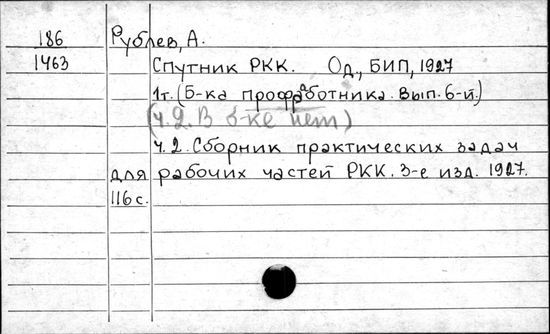 186 Рублев, А.
1463 Спутник РКК. Од., БИП, 1927
1т. (Б-ка профработника. Вып. 6-й.)
(ч. 2. В б-ке нет)
ч. 2. Сборник практических задач
для рабочих частей РКК. 3-е изд. 1927.
116 с.